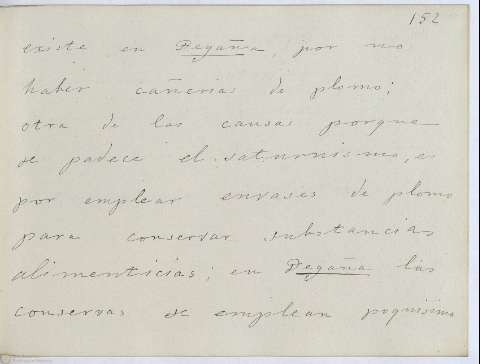 152
existe en Degaña, por no
haber cañerias de plomo;
otra de las causas porque
se padece el saturnismo, es
por emplear envases de plomo
para conservar substancias
alimenticias; en Degaña las
conservas se emplean poquisimo